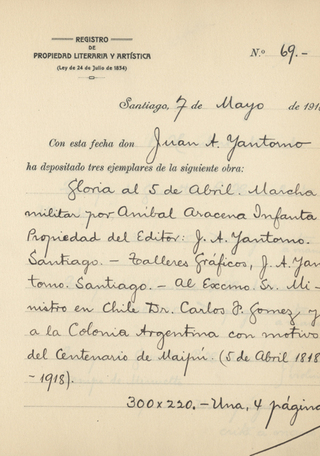 REGISTRO
DE
PROPIEDAD LITERARIA Y ARTÍSTICA
(Ley de 24 de Julio de 1834)
N.º 69.-
Santiago, 7 de Mayo de 191
Con esta fecha don Juan A. Yantorno
ha depositado tres ejemplares de la siguiente obra:
Gloria al 5 de Abril. Marcha
militar por Aníbal Aracena Infanta
Propiedad del Editor: J. A. Yantorno.
Santiago. - Talleres Gráficos, J. A. Yan
torno. Santiago. - Al Excmo. Sr. Mi-
nistro en Chile Dr. Carlos F. Gomez y
a la Colonia Argentina con motivo
del Centenario de Maipú. (5 de Abril 1818
-1918).
300 x 220. - Una, 4 página